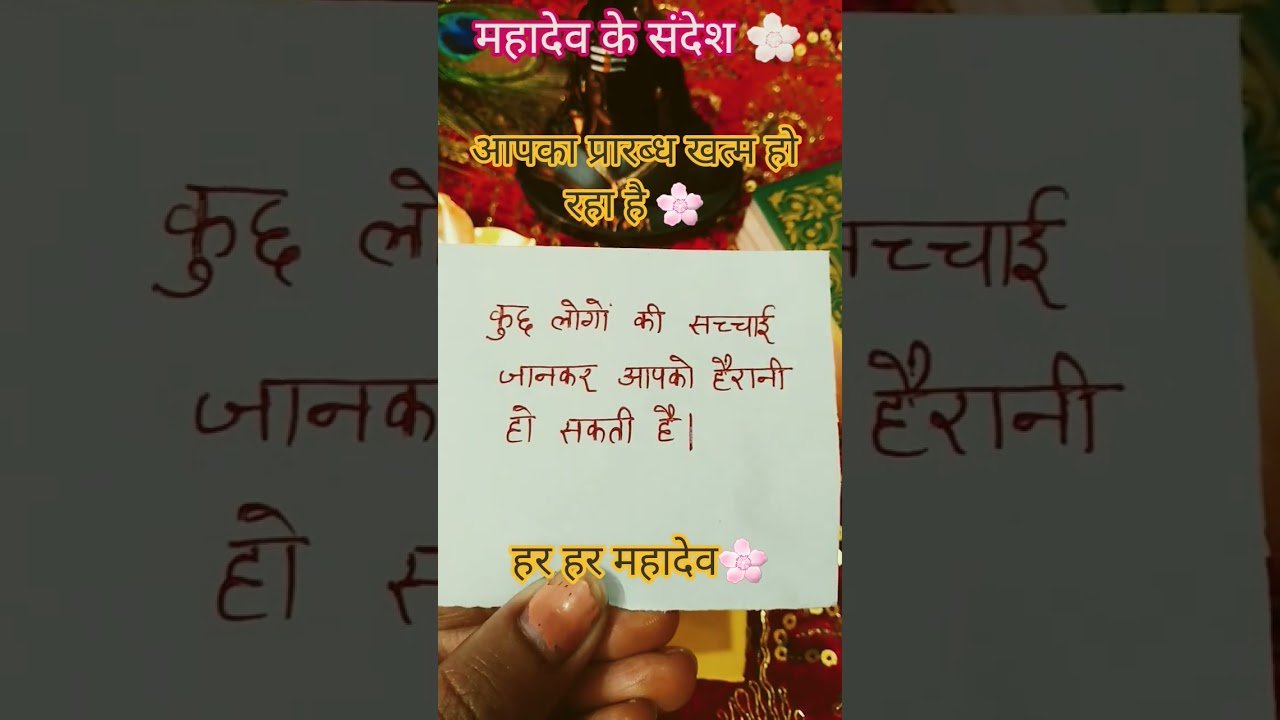 महादेव के संदेश
आपका प्रारब्ध खत्म हो
रहा है
कुछ लोगों की सच्चाई
जानकर आपको हैरानी
हो सकती है।
हर हर महादेव